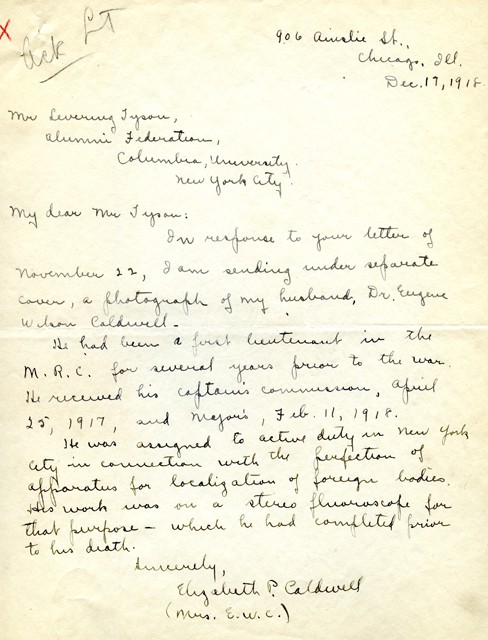 x
Ack LT
906 Ainslie St.,
Chicago, Ill.
Dec. 17, 1918.
Mr Levering Tyson,
Alumni Federation,
Columbia, University.
New York City.
My dear Mr Tyson:
In response to your letter of
November 22, I am sending under separate
cover, a photograph of my husband, Dr. Eugene
Wilson Caldwell -
He had been a first lieutenant in the
M. R. C. for several years prior to the war.
He received his captain's commission, April
25, 1917, and Major's, Feb. 11, 1918.
He was assigned to active duty in New York
City in connection with the perfection of
apparatus for localization of foreign bodies.
His work was on a stereo fluoroscope for
that purpose - which he had completed prior
to his death.
Sincerely,
Elizabeth P. Caldwell
(Mrs. E. W. C.)